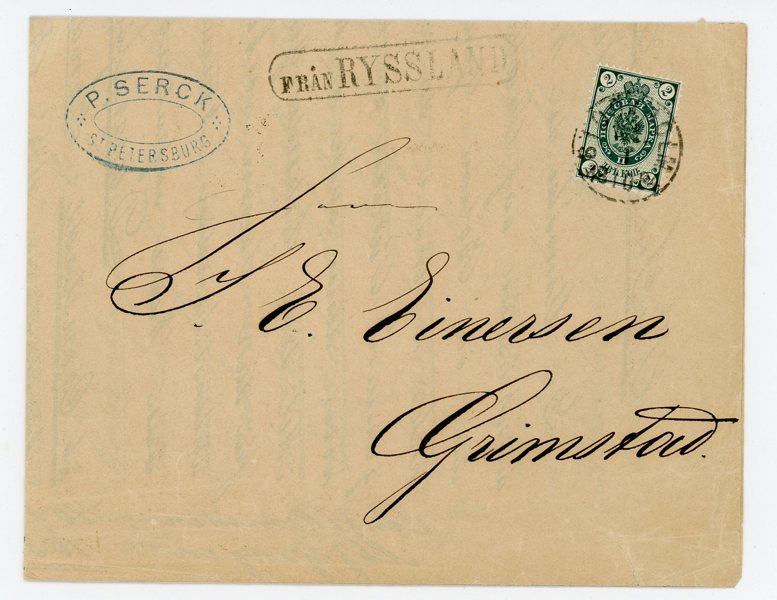 P. SERCK
ST PETERSBURG
FRÅN RYSSLAND
2 2
ПОЧТОВАЯ МАРКА
ДВѢ КОП.
Herrn
J. E. Einersen
Grimstad.